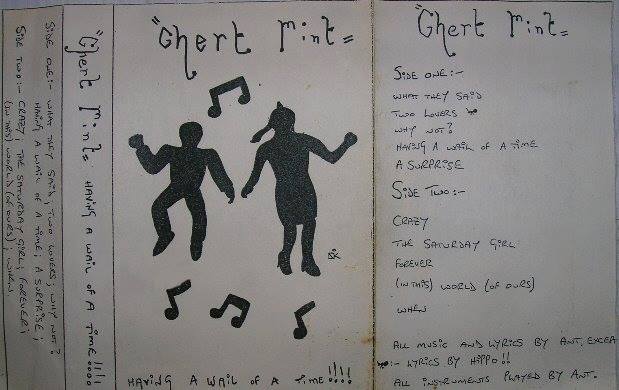 SIDE ONE:- WHAT THEY SAID; TWO LOVERS; WHY NOT?
HAVING A WAIL OF A TIME; A SURPRISE;
SIDE TWO:- CRAZY; THE SATURDAY GIRL; FOREVER;
(IN THIS) WORLD (OF OURS); WHEN.
"Ghert Mint= HAVING A WAIL OF A TIME!!!!
"Ghert Mint=
SK
HAVING A WAIL OF A TIME!!!!
"Ghert Mint=
SIDE ONE:-
WHAT THEY SAID
TWO LOVERS *
WHY NOT?
HAVING A WAIL OF A TIME
A SURPRISE
SIDE TWO:-
CRAZY
THE SATURDAY GIRL
FOREVER
(IN THIS) WORLD (OF OURS)
WHEN
ALL MUSIC AND LYRICS BY ANT, EXCEA
*:- LYRICS BY HIPPO!!
ALL INSTRUMENTS PLAYED BY ANT.